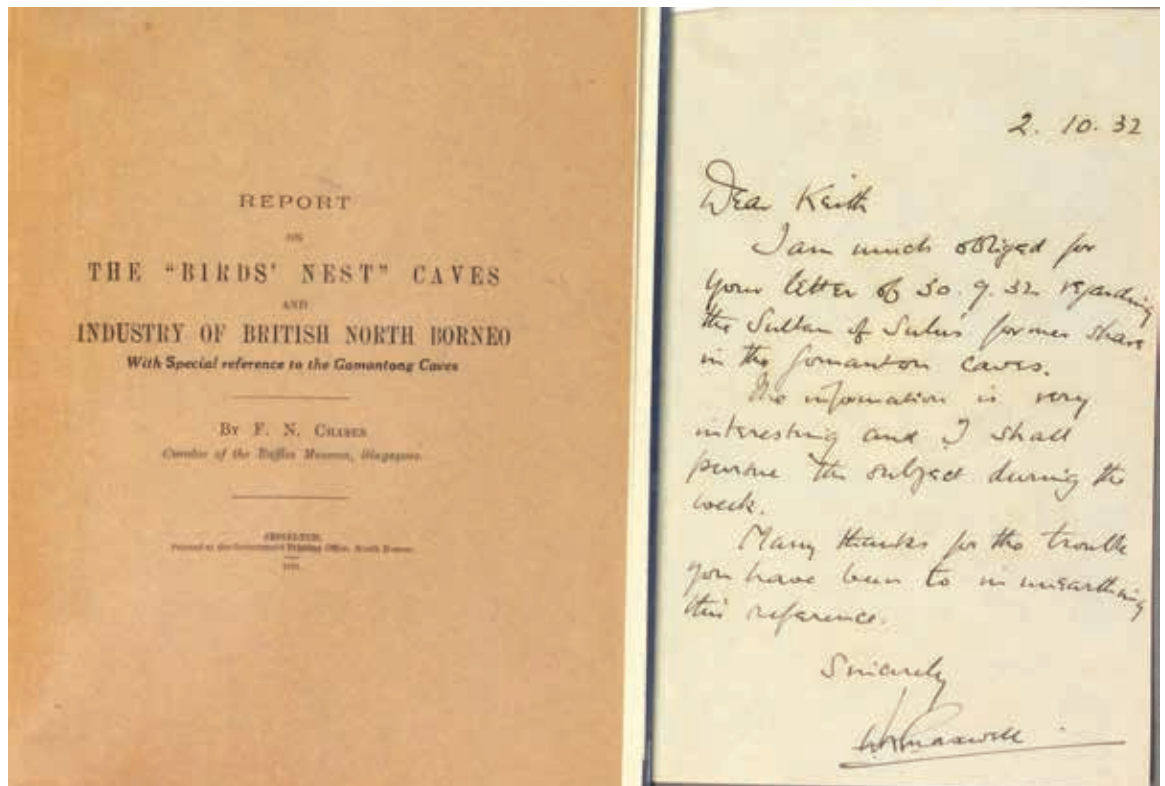 REPORT
ON
THE "BIRDS' NEST" CAVES
AND
INDUSTRY OF BRITISH NORTH BORNEO
With Special reference to the Gomantong Caves
By F. N. Chasen
Curator of the Raffles Museum, Singapore.
JESSELTON.
Printed at the Government Printing Office, North Borneo
2. 10. 32
Dear Keith
I am much obliged for
your letter of 30. 9. 32 regarding
the Sultan of Sulu's former share
in the Gomanton caves.
The information is very
interesting and I shall
pursue the subject during the
week.
Many thanks for the trouble
you have been to in unearthing
this reference.
Sincerely
Maxwell